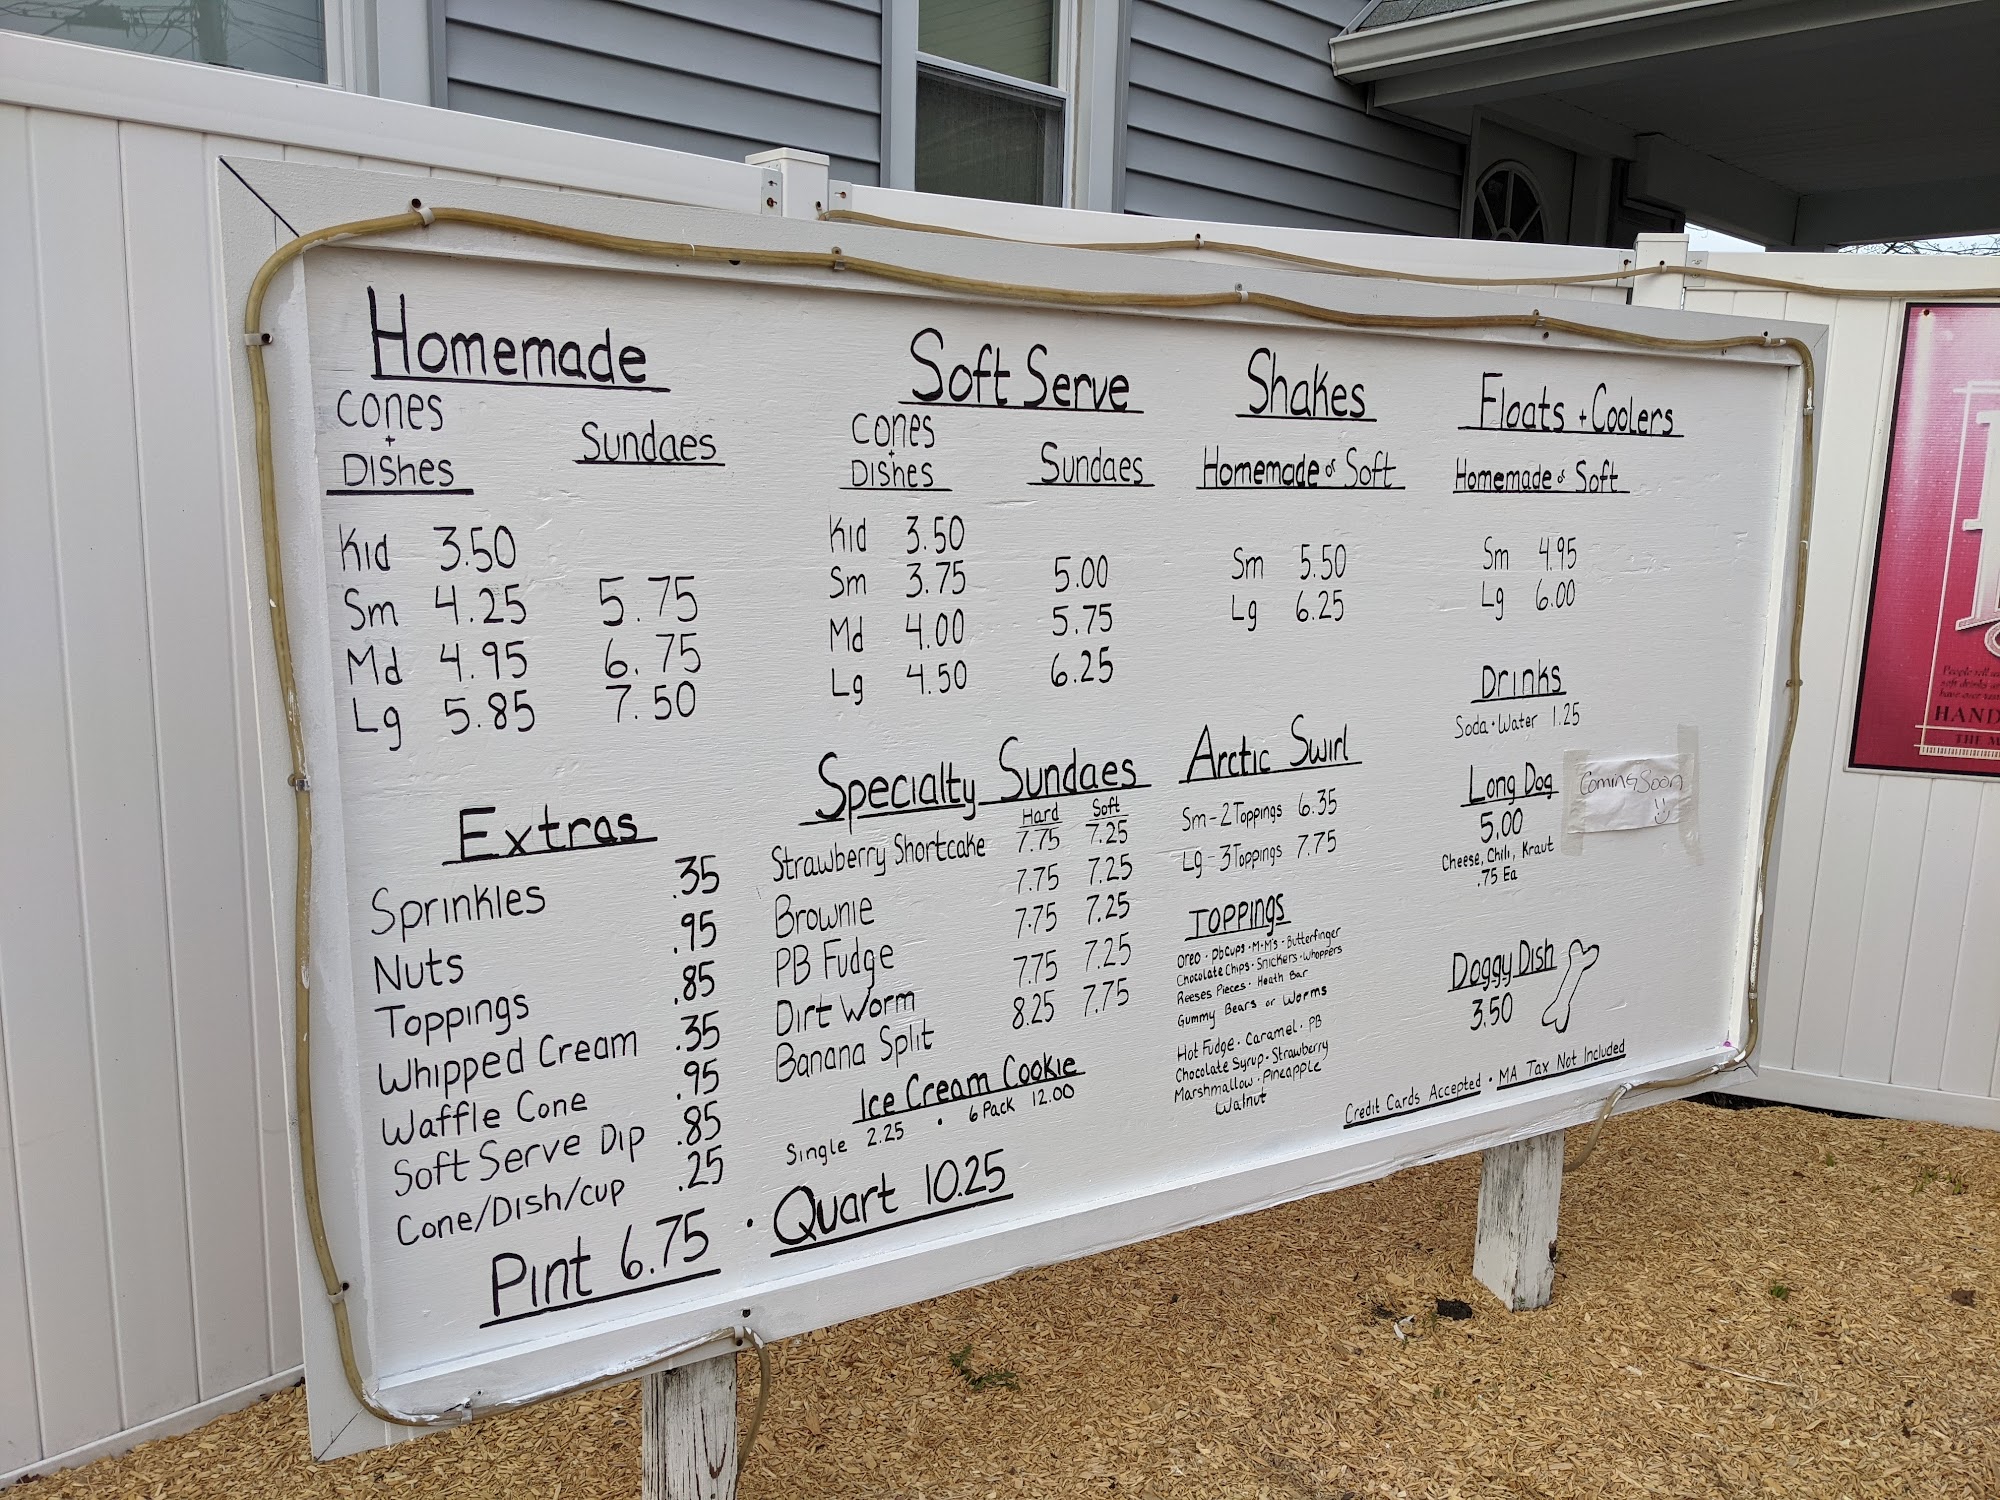 Homemade
Cones
+
Dishes
Sundaes
Kid 3.50
Sm 4.25 5.75
Md 4.95 6.75
Lg 5.85 7.50
Extras
Sprinkles .35
Nuts .95
Toppings .85
Whipped Cream .35
Waffle Cone .95
Soft Serve Dip .85
Cone/Dish/cup .25
Pint 6.75 · Quart 10.25
Soft Serve
Cones
+
Dishes
Sundaes
Kid 3.50
Sm 3.75 5.00
Md 4.00 5.75
Lg 4.50 6.25
Specialty Sundaes
Hard Soft
Strawberry Shortcake 7.75 7.25
Brownie 7.75 7.25
PB Fudge 7.75 7.25
Dirt Worm 7.75 7.25
Banana Split 8.25 7.75
Ice Cream Cookie
Single 2.25 · 6 Pack 12.00
Shakes
Homemade or Soft
Sm 5.50
Lg 6.25
Arctic Swirl
Sm-2 Toppings 6.35
Lg-3 Toppings 7.75
Toppings
Oreo · Pbcups · M+M's · Butterfinger
Chocolate Chips · Snickers · Whoppers
Reeses Pieces · Heath Bar
Gummy Bears or Worms
Hot Fudge · Caramel · PB
Chocolate Syrup · Strawberry
Marshmallow · Pineapple
Walnut
Floats + Coolers
Homemade or Soft
Sm 4.95
Lg 6.00
Drinks
Soda · Water 1.25
Long Dog
5.00
Cheese, Chili, Kraut
.75 Ea
Coming Soon
Doggy Dish
3.50
Credit Cards Accepted · MA Tax Not Included
HAND